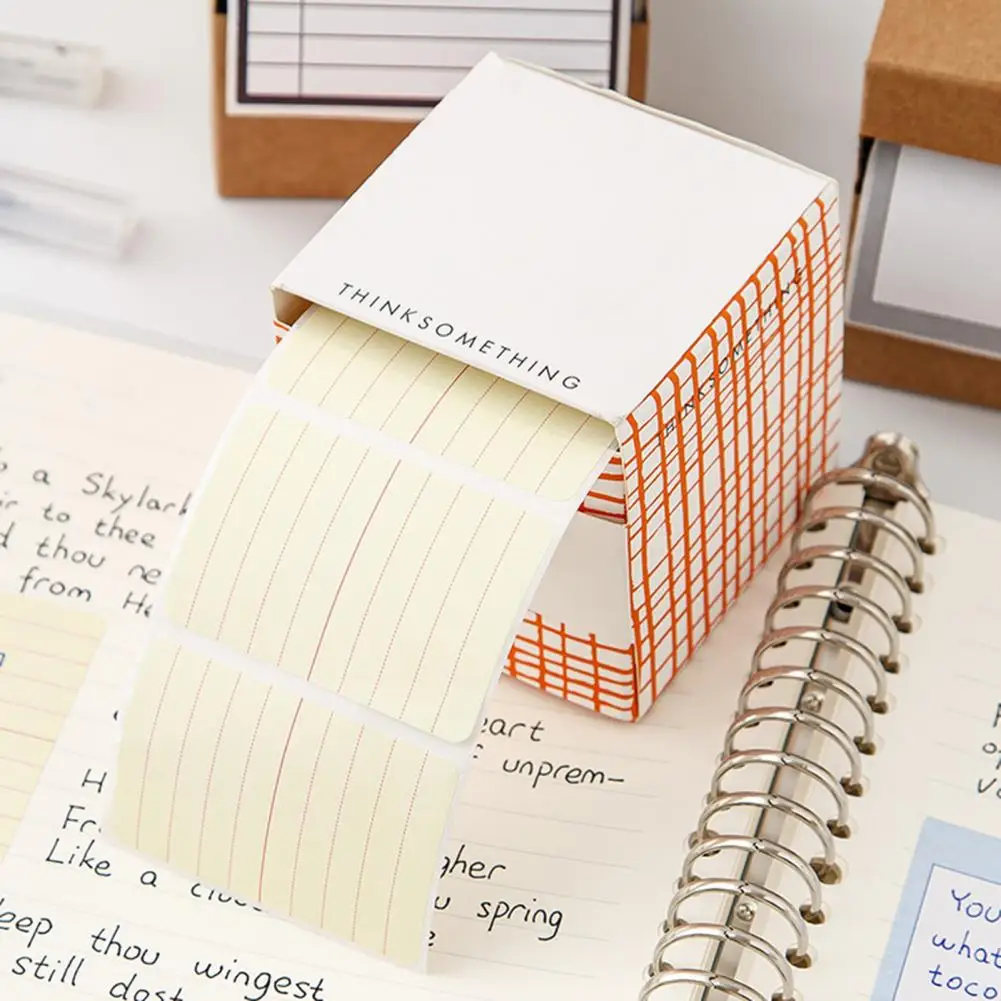 THINKSOMETHING
THINKSOMETHING
a Skylark
to thee
thou
from
eart
unprem-
Fr
Like a
gher
spring
eep thou wingest
still dost
You
what
toco